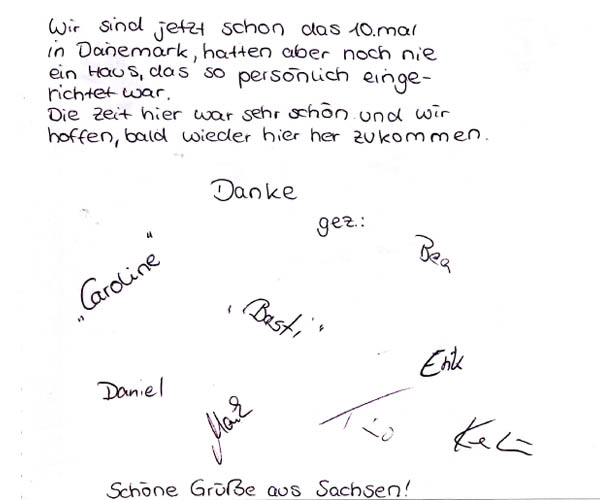 Wir sind jetzt schon das 10.mal
in Dänemark, hatten aber noch nie
ein Haus, das so persönlich einge-
richtet war.
Die Zeit hier war sehr schön und wir
hoffen, bald wieder hier her zukommen.
Danke
gez.:
Bea
„Caroline"
„Basti"
Erik
Daniel
Tio
Schöne Grüße aus Sachsen!